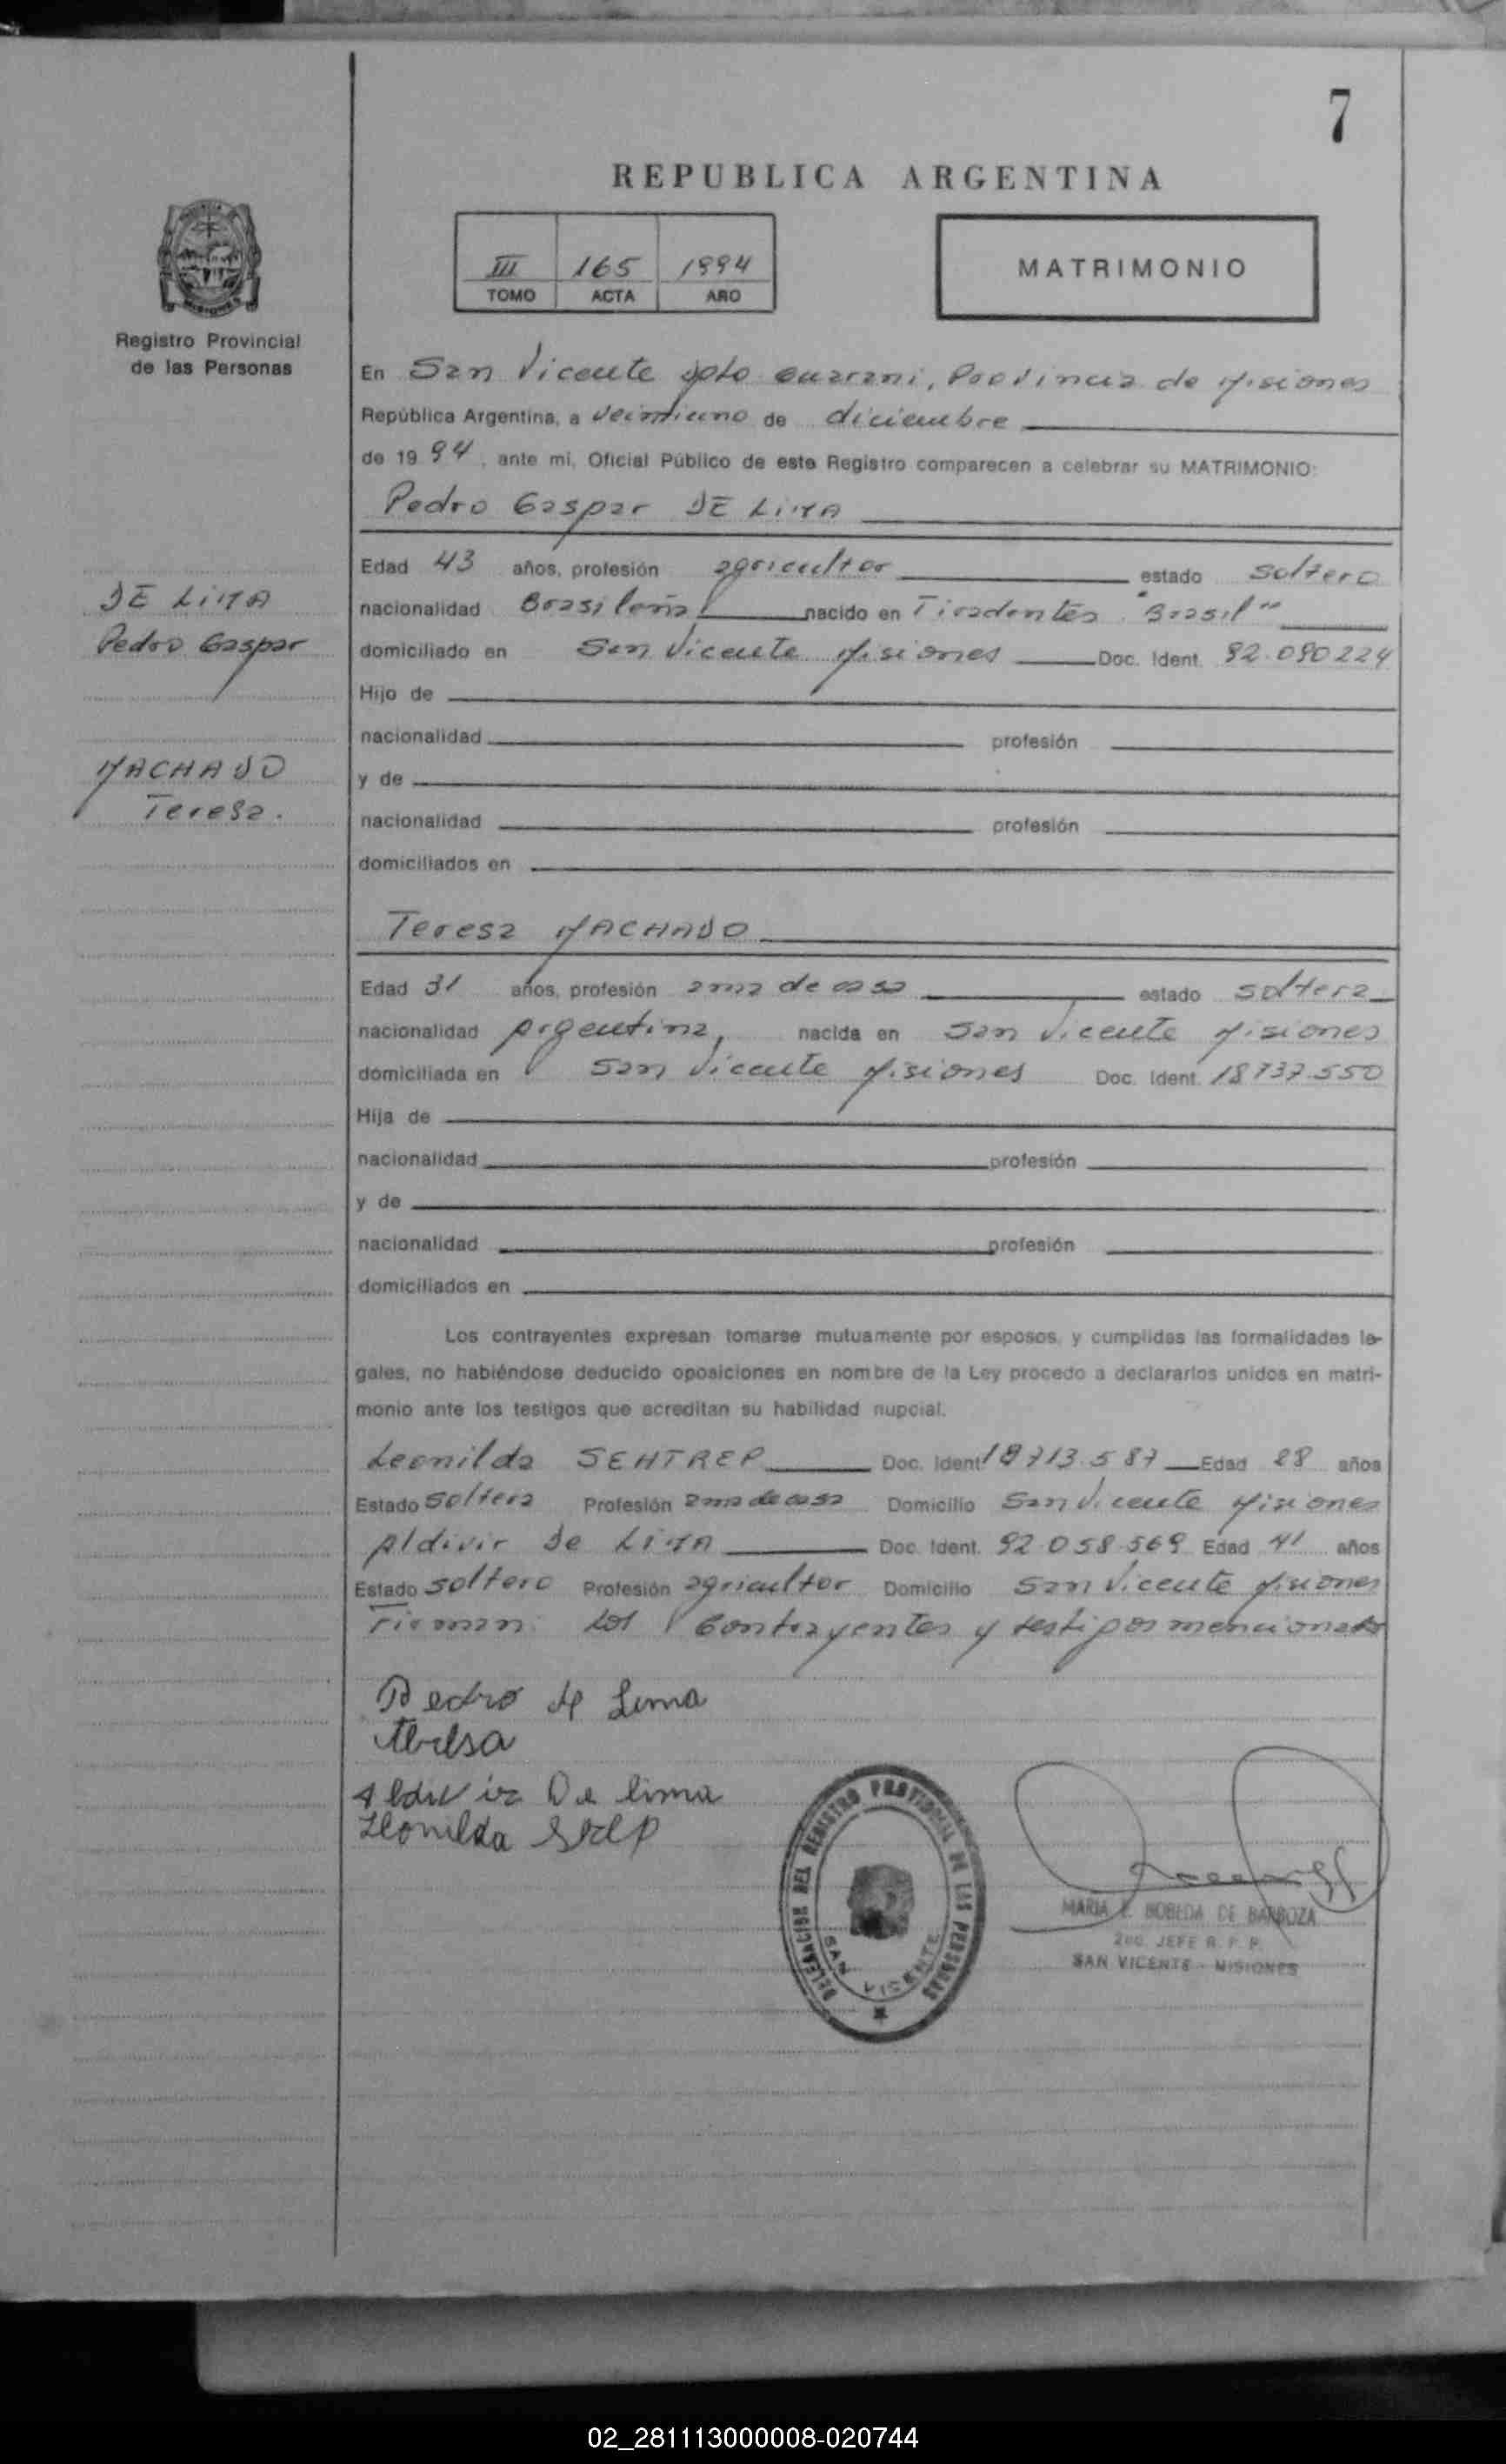 7
REPUBLICA ARGENTINA
III 165 1994
TOMO ACTA AÑO
MATRIMONIO
Registro Provincial
de las Personas
En San Vicente dpto Guarani, Provincia de Misiones
República Argentina, a veintiuno de diciembre
de 19 94, ante mi, Oficial Público de este Registro comparecen a celebrar su MATRIMONIO:
Pedro Gaspar DE LIMA
Edad 43 años, profesión agricultor estado soltero
DE LIMA
Pedro Gaspar
nacionalidad Brasileña nacido en Tiradentes "Brasil"
domiciliado en San Vicente Misiones Doc. Ident. 92.090224
Hijo de
nacionalidad profesión
MACHADO
Teresa.
y de
nacionalidad profesión
domiciliados en
Teresa MACHADO
Edad 31 años, profesión ama de casa estado soltera
nacionalidad Argentina, nacida en San Vicente Misiones
domiciliada en San Vicente Misiones Doc. Ident. 18737.550
Hija de
nacionalidad profesión
y de
nacionalidad profesión
domiciliados en
Los contrayentes expresan tomarse mutuamente por esposos, y cumplidas las formalidades le-
gales, no habiéndose deducido oposiciones en nombre de la Ley procedo a declararlos unidos en matri-
monio ante los testigos que acreditan su habilidad nupcial.
Leonilda Doc. Ident. 18713.587 Edad 28 años
Estado soltera Profesión ama de casa Domicilio San Vicente Misiones
Aldivir de LIMA Doc. Ident. 92.058.569 Edad 41 años
Estado soltero Profesión agricultor Domicilio San Vicente Misiones
Firman los Contrayentes y testigos mencionados
Pedro de Lima
Aldivir De lima
DELEGACION DEL REGISTRO PROVINCIAL DE LAS PERSONAS
SAN VICENTE
MARIA E. BOBEDA DE BARBOZA
2do. JEFE R. P. P.
SAN VICENTE - MISIONES
02_281113000008-020744